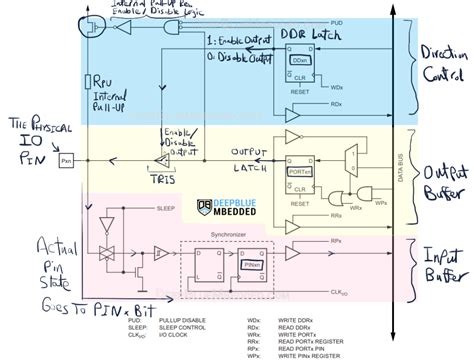 Internal Pull-Up Res
Enable/Disable Logic
PUD
DDR Latch
1: Enable Output
0: Disable Output
Q D
DDxn
Q CLR
RESET
WDx
RDx
Direction
Control
RPU
Internal
Pull-UP
The Physical
IO
PIN
Pxn
Enable/
Disable
Output
TRIS
OUTPUT
LATCH
Q D
PORTxn
Q CLR
RESET
1
0
WRx
WPx
RRx
DATA BUS
Output
Buffer
DEEPBLUE
MBEDDED
SLEEP
Synchronizer
RPx
D Q
L Q
D Q
PINxn
Q
CLK I/O
Actual
Pin
State
Goes To PINx Bit
Input
Buffer
PUD: PULLUP DISABLE
SLEEP: SLEEP CONTROL
CLK I/O: I/O CLOCK
WDx: WRITE DDRx
RDx: READ DDRx
WRx: WRITE PORTx
RRx: READ PORTx REGISTER
RPx: READ PORTx PIN
WPx: WRITE PINx REGISTER